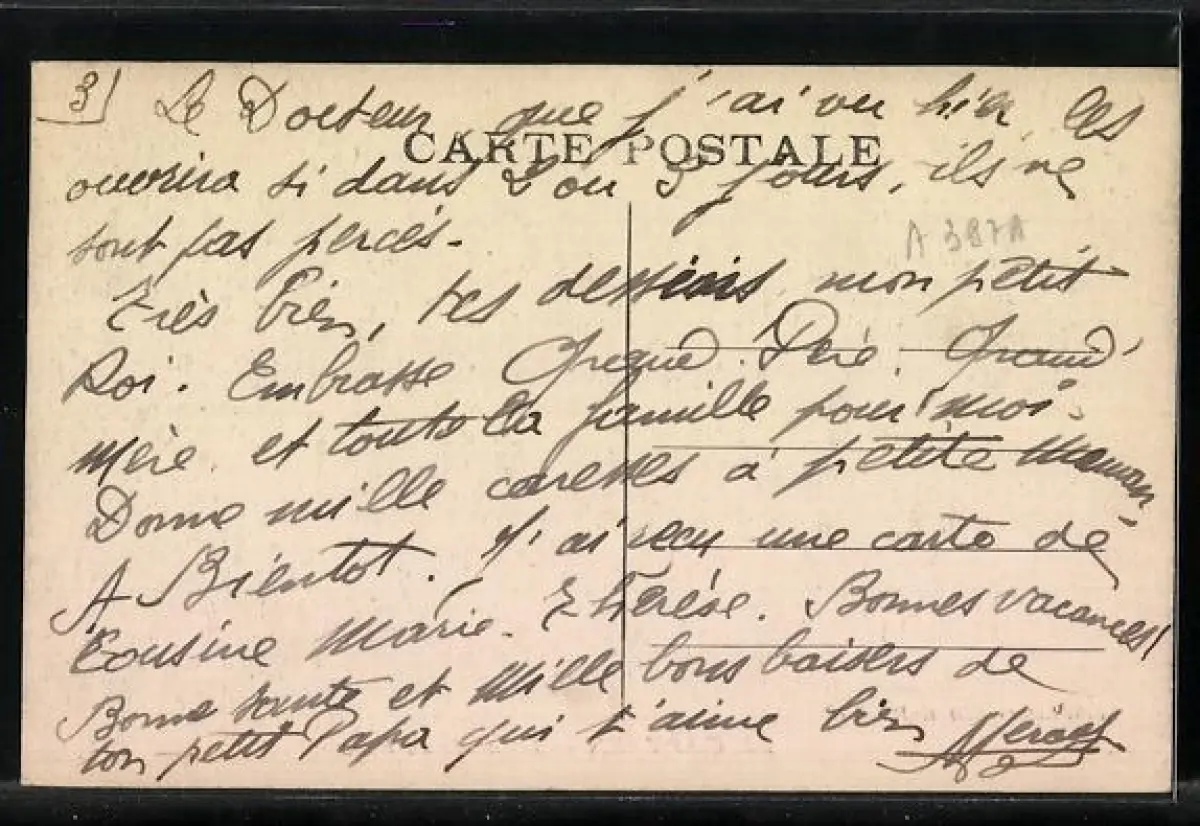 3) Le Docteur, que j'ai vu hier, les
CARTE POSTALE
ouvrira si dans 2 ou 3 jours, ils ne
sont pas percés.
A 387A
Très bien, tes dessins, mon petit
Roi. Embrasse Grand. Père, Grand'
mère, et toute la famille pour moi.
Donne mille caresses à petite Maman.
A Bientot. J'ai reçu une carte de
Cousine Marie. Thérèse. Bonnes vacances!
Bonne santé et Mille bons baisers de
ton petit Papa qui t'aime bien